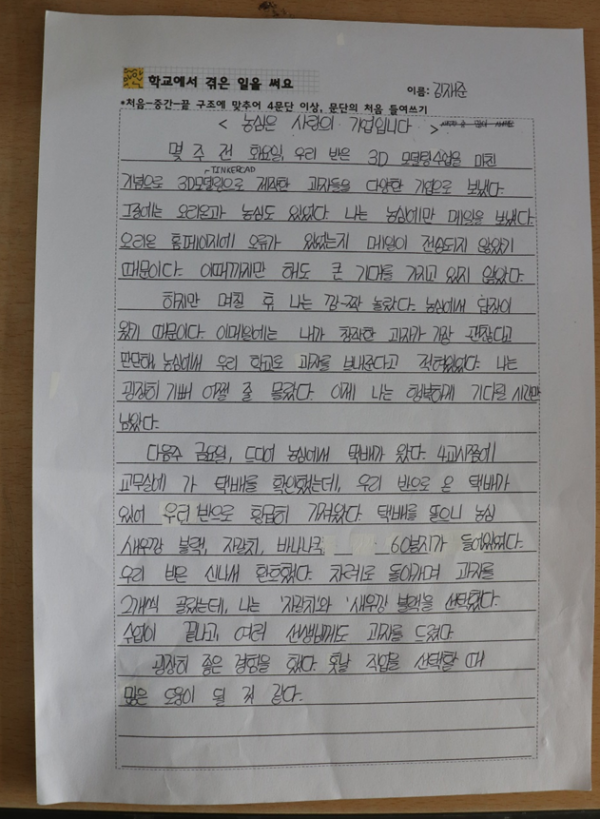 학교에서 겪은 일을 써요
이름: 김재준
*처음-중간-끝 구조에 맞추어 4문단 이상, 문단의 처음 들여쓰기
< 농심은 사랑의 기업입니다 >
몇 주 전 화요일, 우리 반은 3D 모델링수업을 마친
TINKERCAD
기념으로 3D모델링으로 제작한 과자들을 다양한 기업으로 보냈다.
그중에는 오리온과 농심도 있었다. 나는 농심에만 메일을 보냈다.
오리온 홈페이지에 오류가 있었는지 메일이 전송되지 않았기
때문이다. 이때까지만 해도 큰 기대를 가지고 있지 않았다.
하지만 며칠 후 나는 깜짝 놀랐다. 농심에서 답장이
왔기 때문이다. 이메일에는 내가 창작한 과자가 가장 괜찮다고
판단해, 농심에서 우리 학교로 과자를 보내준다고 적혀있었다. 나는
굉장히 기뻐 어쩔 줄 몰랐다. 이제 나는 행복하게 기다릴 시간만
남았다.
다음주 금요일, 드디어 농심에서 택배가 왔다. 4교시쯤에
교무실에 가 택배를 확인했는데, 우리 반으로 온 택배가
있어 우리 반으로 황급히 가져왔다. 택배를 뜯으니 농심
새우깡 블랙, 자갈치, 바나나킥 60봉지가 들어있었다.
우리 반은 신나서 환호했다. 차례로 돌아가며 과자를
2개씩 골랐는데, 나는 '자갈치'와 '새우깡 블랙'을 선택했다.
수업이 끝나고, 여러 선생님께도 과자를 드렸다
굉장히 좋은 경험을 했다. 훗날 직업을 선택할 때
많은 도움이 될 것 같다.